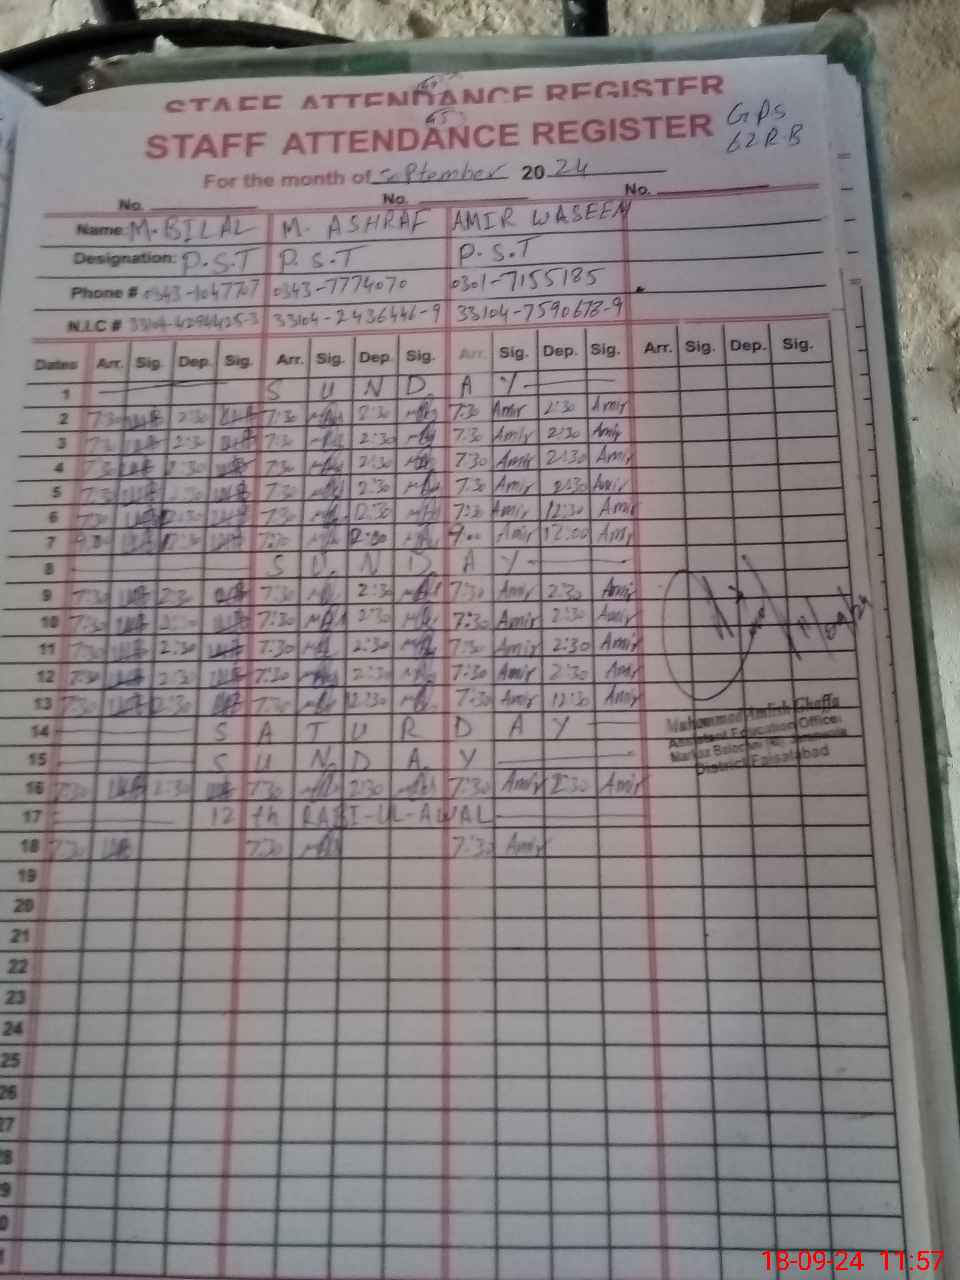 STAFF ATTENDANCE REGISTER
STAFF ATTENDANCE REGISTER GPS
62 R.B
For the month of September 2024
No. No. No.
Name: M. BILAL M. ASHRAF AMIR WASEEM
Designation: P.S.T P.S.T P.S.T
Phone # 0343-1047707 0343-7774070 0301-7155185
N.I.C # 33104-4294425-3 33104-2436446-9 33104-7590673-9
Dates Arr. Sig. Dep. Sig. Arr. Sig. Dep. Sig. Arr. Sig. Dep. Sig. Arr. Sig. Dep. Sig.
1 S U N D A Y
2 7:30 2:30 7:30 2:30 7:30 Amir 2:30 Amir
3 7:30 2:30 7:30 2:30 7:30 Amir 2:30 Amir
4 7:30 2:30 7:30 2:30 7:30 Amir 2:30 Amir
5 7:30 2:30 7:30 2:30 7:30 Amir 2:30 Amir
6 7:30 12:30 7:30 12:30 7:30 Amir 12:30 Amir
7 9:00 7:30 9:00 Amir 12:00 Amir
8 S U N D A Y
9 7:30 2:30 7:30 2:30 7:30 Amir 2:30 Amir
10 7:30 2:30 7:30 2:30 7:30 Amir 2:30 Amir
11 7:30 2:30 7:30 2:30 7:30 Amir 2:30 Amir
12 7:30 2:30 7:30 2:30 7:30 Amir 2:30 Amir
13 7:30 12:30 7:30 12:30 7:30 Amir 12:30 Amir
14 S A T U R D A Y
15 S U N D A Y
16 7:30 2:30 7:30 2:30 7:30 Amir 2:30 Amir
17 12 th RABI-UL-AWAL
18 7:30 7:30 7:30 Amir
Assistant Education Officer
District Faisalabad
19
20
21
22
23
24
25
26
27
18-09-24 11:57